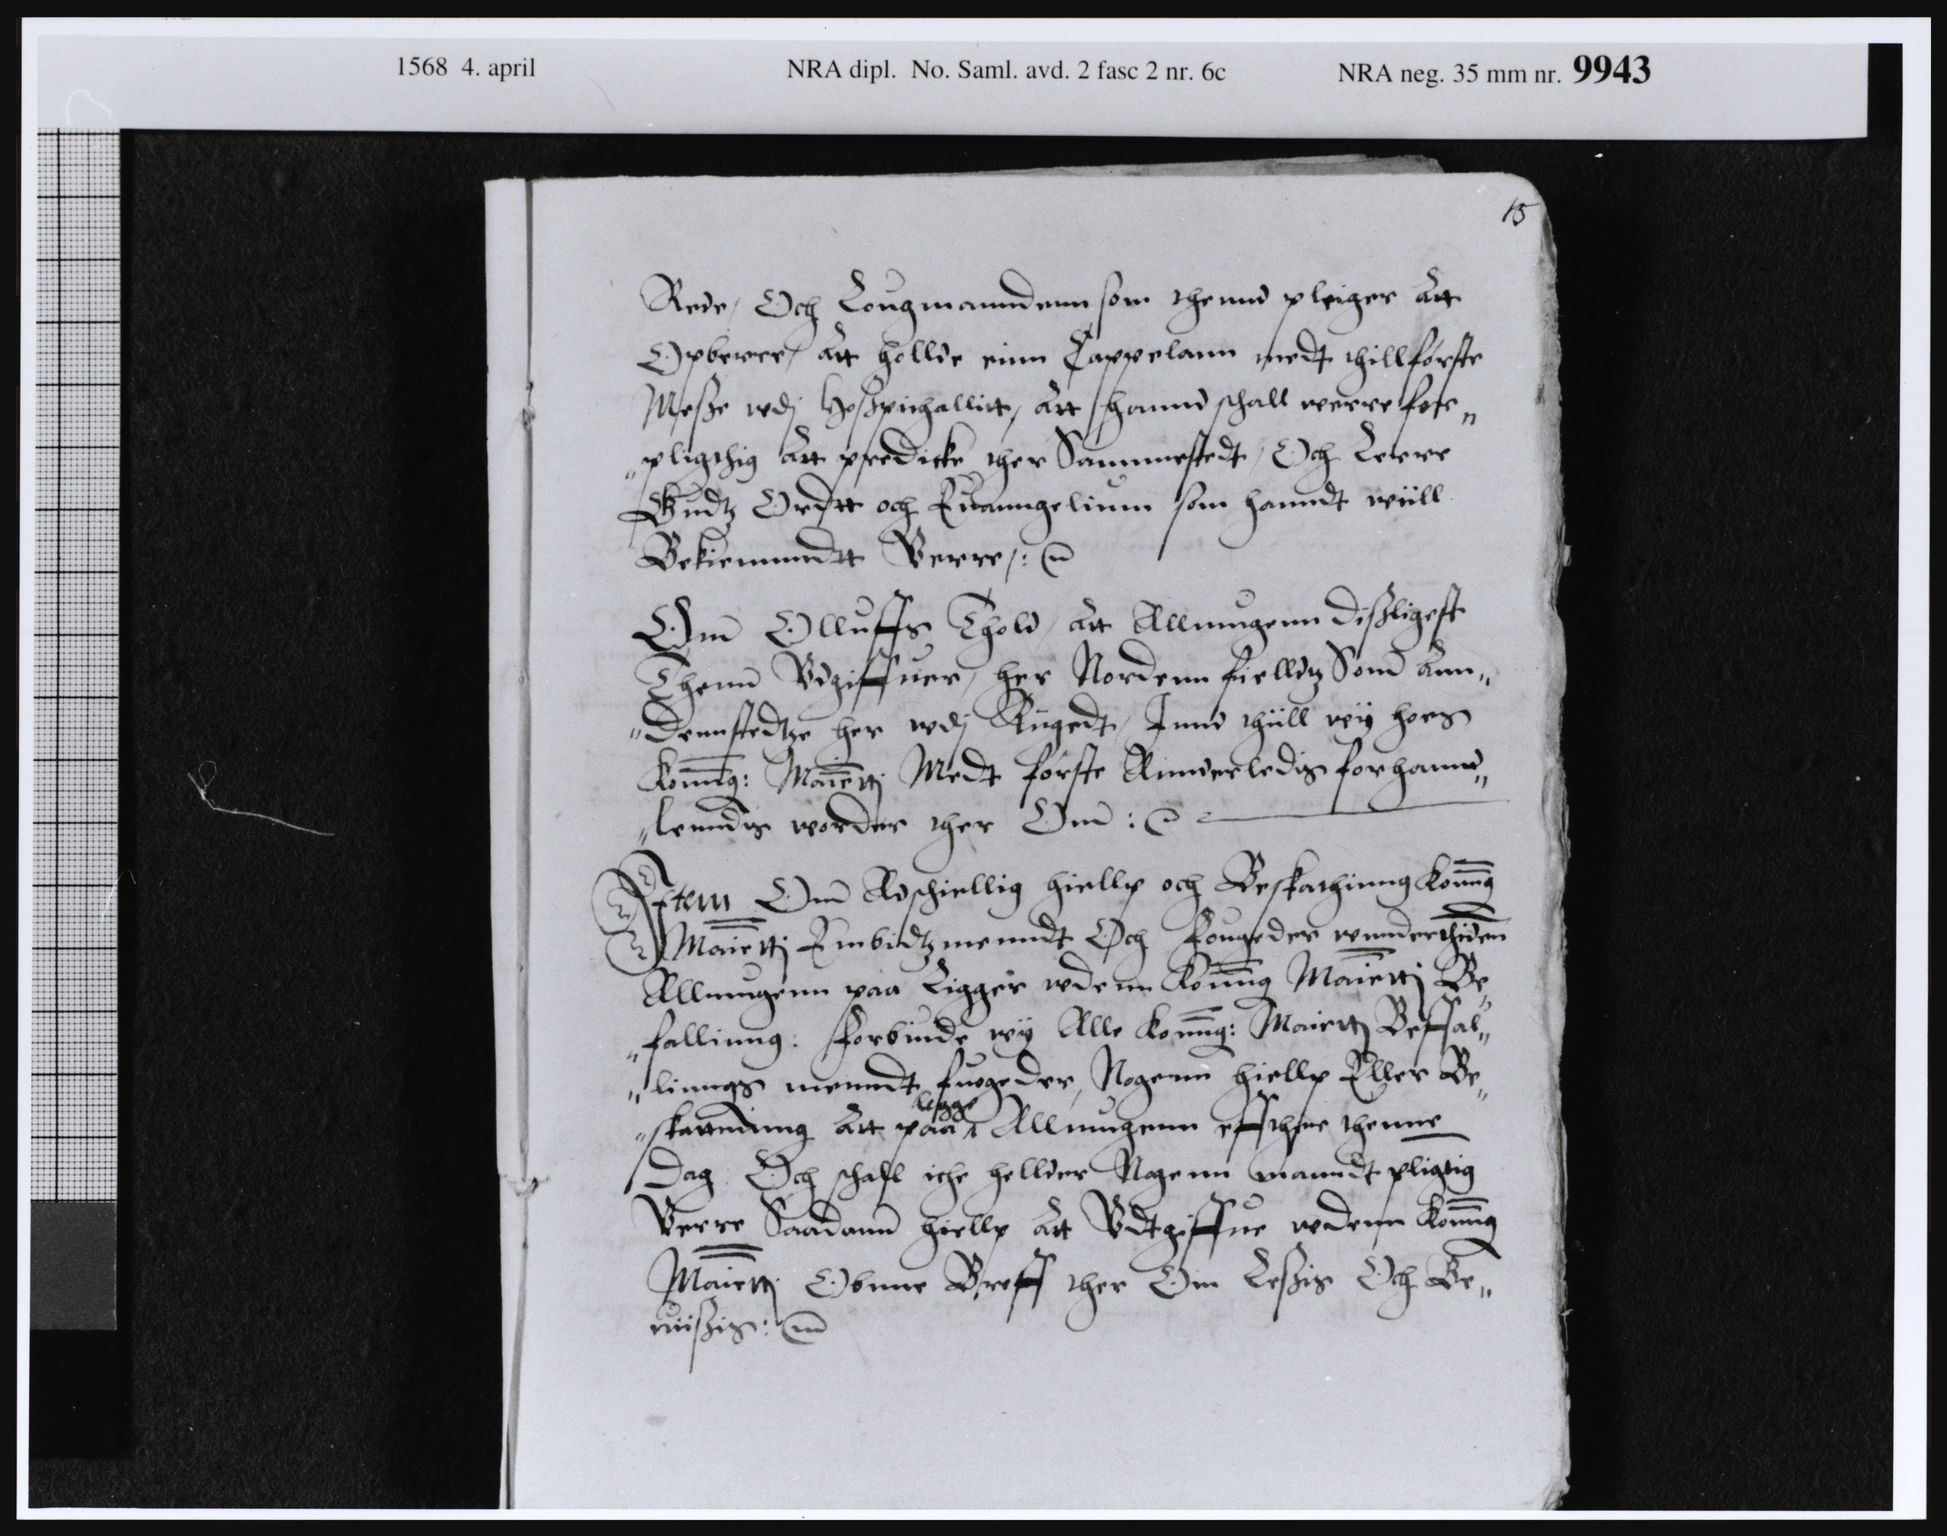 1568 4. april NRA dipl. No. Saml. avd. 2 fasc 2 nr. 6c NRA neg. 35 mm nr. 9943
15
Rede, Och Lougmanndenn som thennd pleiger Att
Opberre, Att hollde einn Cappelann medt thill første
Messe wdj Hosspithallitt, Att hannd schall werre fore„
„pligthig Att predicke ther Sammestedt, Och Lerre
Gudtz Ordtt och Euanngelium som hanndt will
Bekienndtt Verre,:
Om Olluffs Thold, Att Allmugenn disligest
Thenn Vdgiffuer, her Nordenn fieldtz Som Ann„
„dennstedtze her wdj Riigedt, Innd thiill wii hoes
Konng: Maiettj Medt første Annderledis forhannd„
„lenndis worder ther Om:
Item Om Adschiellig hiellp och Beskathinng Konng
Maiettj Embidtzmenndt Och Fougeder wnnderthiden
Allmugenn paa Ligger wdenn Konng Maiettj Be„
„fallinng: Forbiude wij Alle Konng: Maiettj Beffal„
„linngs menndt fuogeder, Nogenn hiellp Eller Be„
„skattnning Att paa legge Allmugenn effther thenne
Dag Och schall iche hellder Nogenn manndt pligtig
Verre Saadann hiellp Att Vdtgiffue wdenn Konng
Maiettj Obnne Breff ther Om Lessis Och Be„
uiissis: